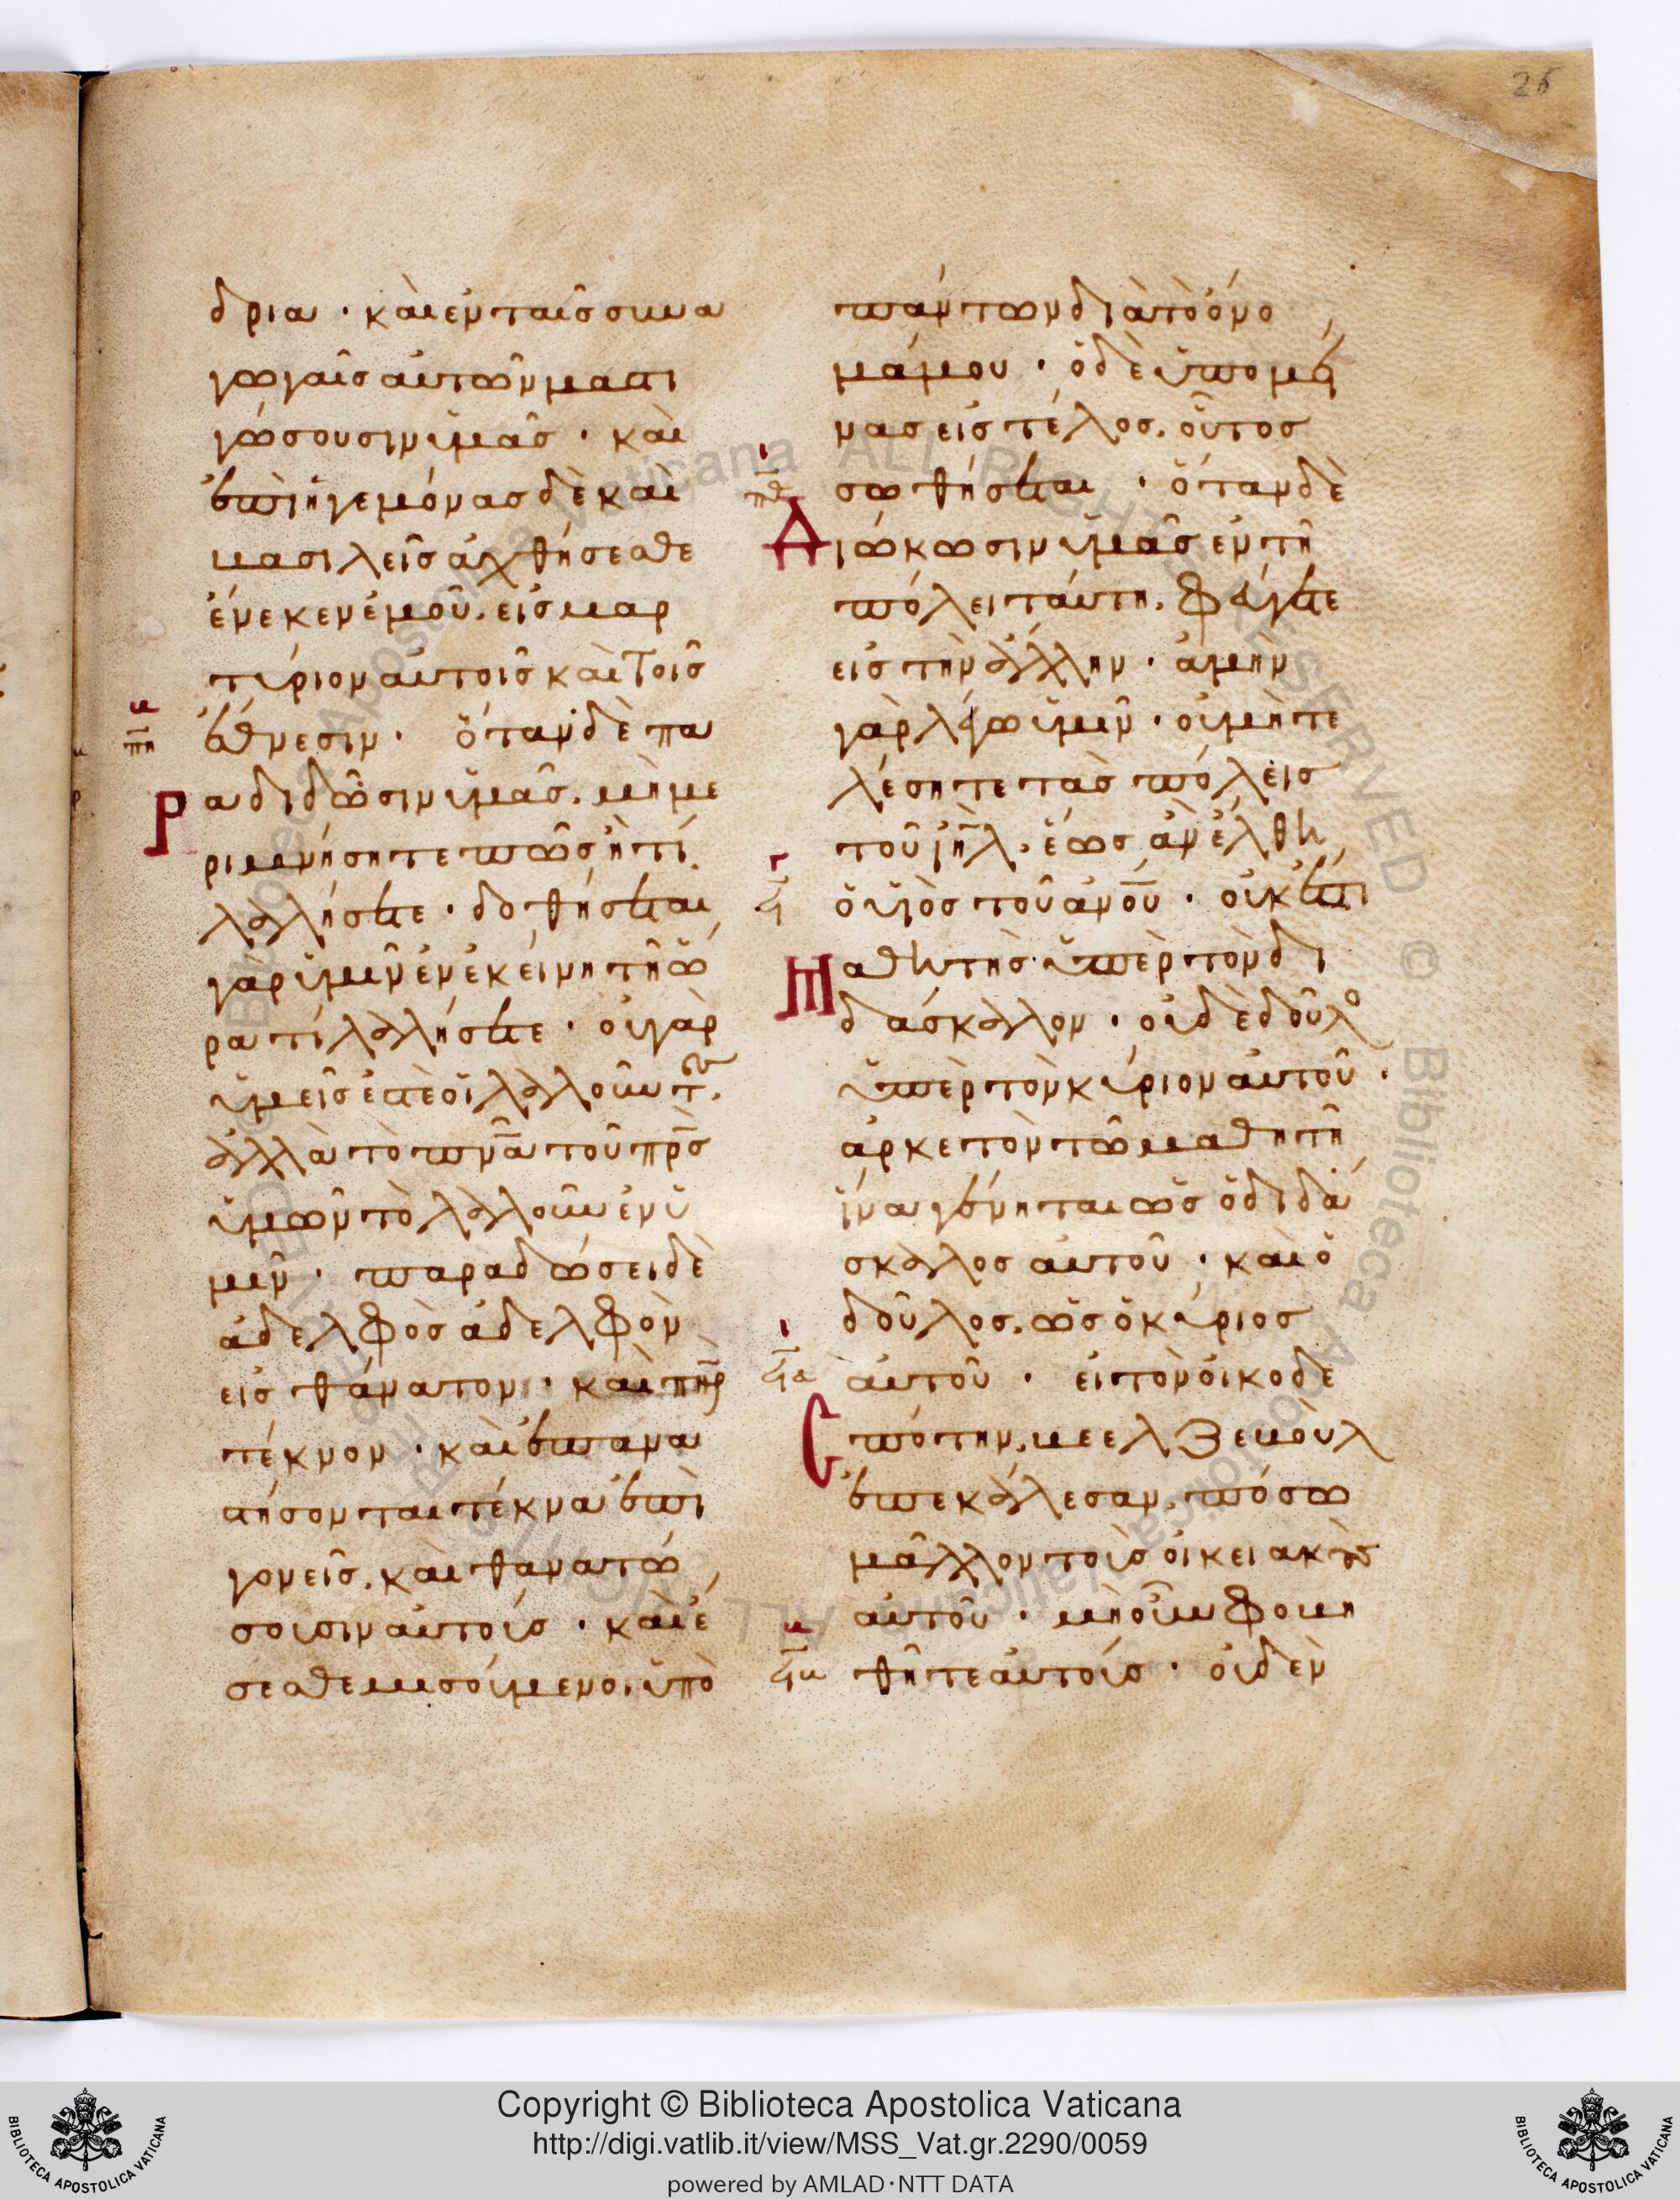 26
δρια · καὶ ἐν ταῖς συνα
γωγαῖς αὐτῶν μαστι
γώσουσιν ὑμᾶς · καὶ
ἐπὶ ἡγεμόνας δὲ καὶ
βασιλεῖς ἀχθήσεσθε
ἕνεκεν ἐμοῦ. εἰς μαρ
τύριον αὐτοῖς καὶ τοῖς
ε
πη
ἔθνεσιν · ὅταν δὲ πα
Ραδιδῶσιν ὑμᾶς. μὴ με
ριμνήσητε πῶς ἢ τί
λαλήσετε · δοθήσεται
γὰρ ὑμῖν ἐν ἐκείνη τῆ ὥ
ρα τί λαλήσετε · οὐ γὰρ
ὑμεῖς ἐστὲ οἱ λαλοῦντ(ες).
ἀλλὰ τὸ πν̅α τοῦ πρ̅ς
ὑμῶν τὸ λαλοῦν ἐν ὑ
μῖν · παραδώσει δὲ
ἀδελφὸς ἀδελφὸν
εἰς θάνατον · καὶ πη̅ρ
τέκνον · καὶ ἐπανα
στήσονται τέκνα ἐπὶ
γονεῖς. καὶ θανατώ
σουσιν αὐτούς · καὶ ἔ
σεσθε μισούμενοι ὑπὸ
πάντων διὰ τὸ ὄνο
μά μου · ὁ δὲ ὑπομεί
νας εἰς τέλος. οὗτος
ι
πθ
σωθήσεται · ὅταν δὲ
Διώκωσιν ὑμᾶς ἐν τῆ
πόλει ταύτη. φεύγετε
εἰς τὴν ἄλλην · ἀμὴν
γὰρ λέγω ὑμῖν · οὐ μὴ τε
λέσητε τὰς πόλεις
τοῦ ιη̅λ. ἕως ἂν ἔλθη
γ
ϟ
ὁ υἱὸς τοῦ ανο̅υ · οὐκ ἔστι
Μαθητὴς ὑπὲρ τὸν δι
δάσκαλον · οὐδὲ δοῦλο
ὑπὲρ τὸν κύριον αὐτοῦ ·
ἀρκετὸν τῶ μαθητῆ
ἵνα γένηται ὡς ὁ διδά
σκαλος αὐτοῦ · καὶ ὁ
δοῦλος. ὡς ὁ κύριος
ι
ϟα
αὐτοῦ · εἰ τὸν οἰκοδε
Εσπότην. βεελζεβοὺλ
ἐπεκάλεσαν. πόσω
μᾶλλον τοὺς οἰκειακοὺς
αὐτοῦ · μὴ οὖν φοβη
ε
ϟβ
θῆτε αὐτούς · οὐδὲν
Copyright © Biblioteca Apostolica Vaticana
http://digi.vatlib.it/view/MSS_Vat.gr.2290/0059
powered by AMLAD·NTT DATA
BIBLIOTECA APOSTOLICA VATICANA
BIBLIOTECA APOSTOLICA VATICANA